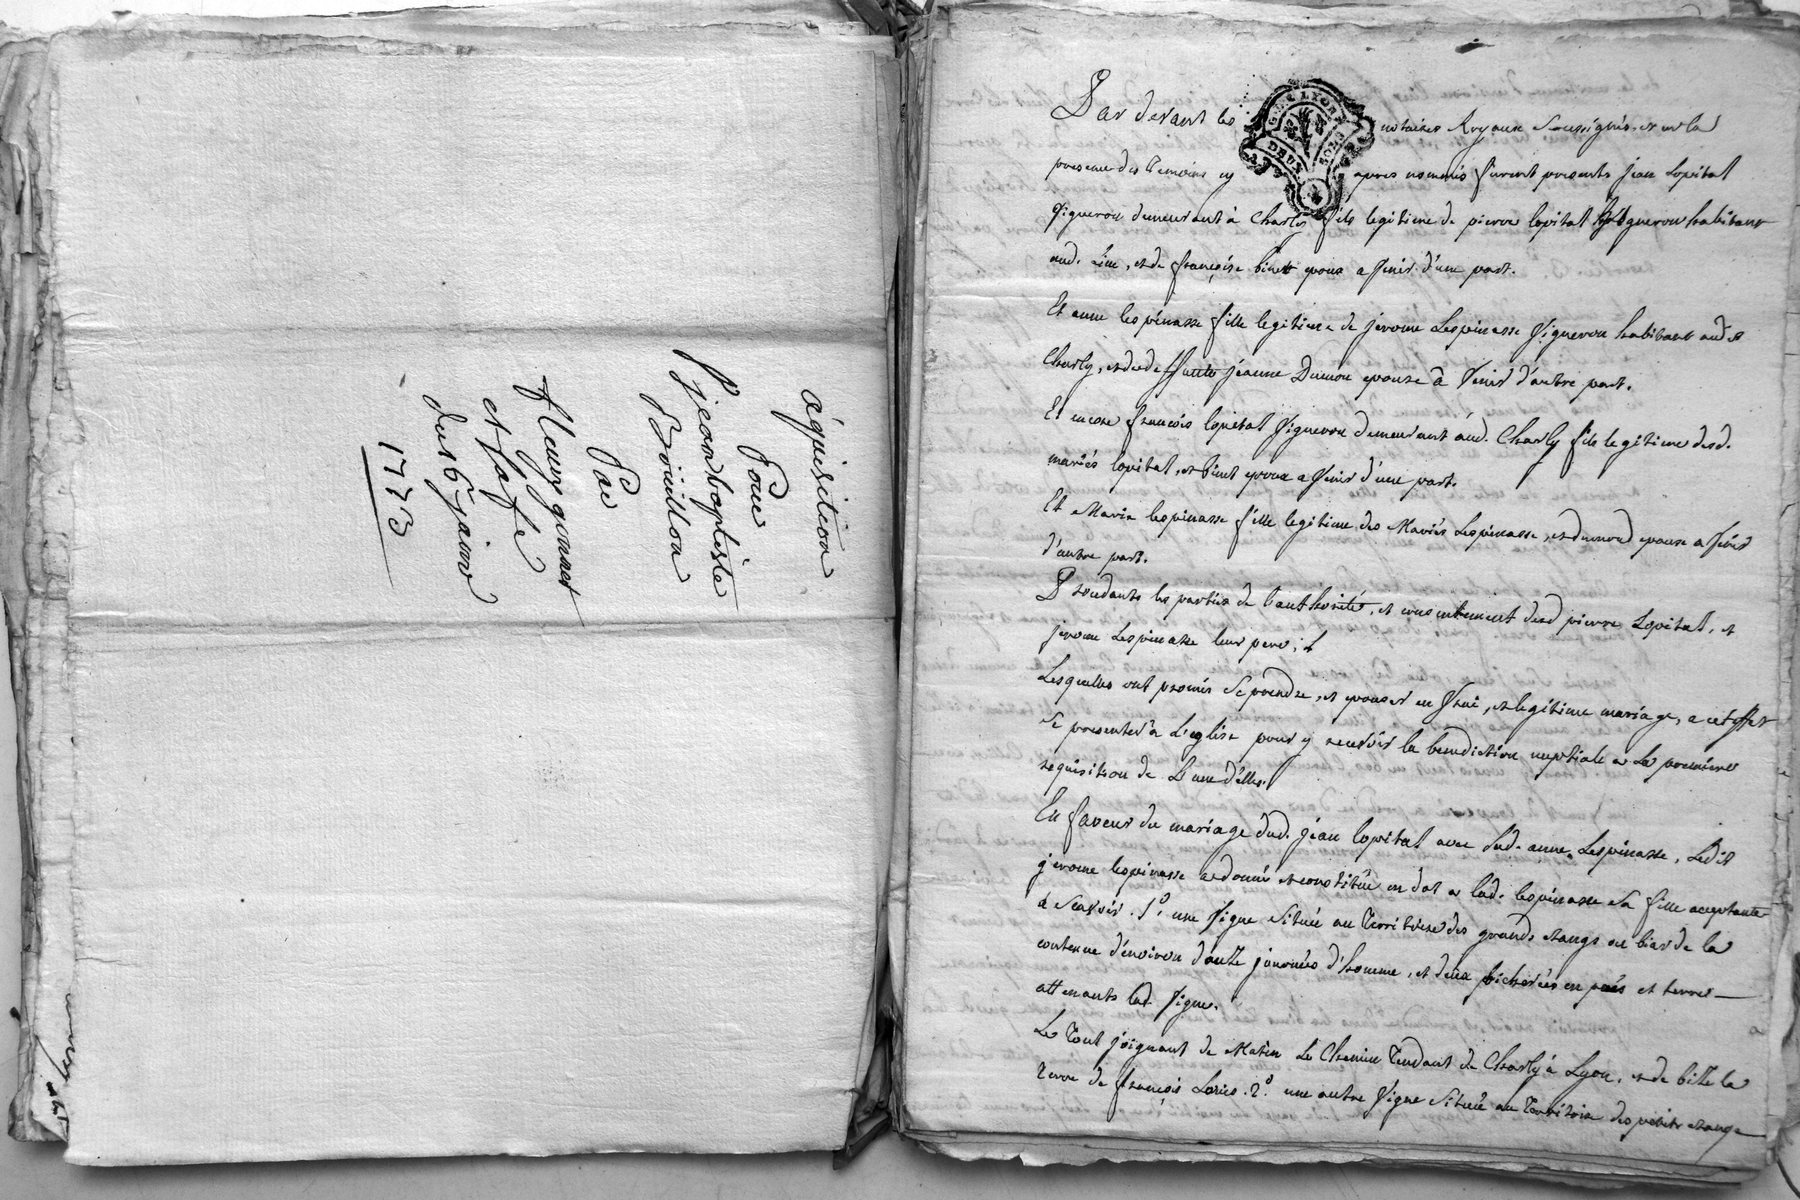 aquisition
Pour
Sr jean baptiste
Brouillon
Par
fleury gonnet
et sa fe
du 16 janvr
1773
Par devant les notaires Royaux soussignés, et en la
presence des temoins cy apres nommés furent presents jean Lopital
Vigneron demeurant à Charly fils legitime de pierre lopital Vigneron habitant
aud. lieu, et de françoise binet epoux a Venir d'une part.
Et anne lespinasse fille legitime de jerome Lespinasse Vigneron habitant aud.
Charly, et de jeanne Dumon epouse à Venir d'autre part.
Et encore françois lopital Vigneron demeurant aud. Charly fils legitime desd.
mariés lopital, et binet epoux a Venir d'une part.
Et Marie lespinasse fille legitime des Mariés Lespinasse, et dumond epouse a Venir
d'autre part.
Procedants les parties de l'authorité, et consentement desd pierre Lopital, et
jerome Lespinasse leur pere;
Lesquelles ont promis se prendre, et epouser en Vrai, et legitime mariage, a cet effet
se presenter à L'eglise pour y recevoir la benediction nuptiale a la premiere
requisition de L'une d'elles.
En faveur du mariage dud. jean lopital avec lad. anne Lespinasse, Ledit
jerome lespinasse a donné et constitué en dot a lad. lespinasse sa fille acceptante
a scavoir. 1o. une Vigne située au Territoire des grands etangs ou bias de la
contenue d'environ douze journées d'homme, et deux bicherées en prés et terres
attenants lad. Vigne.
Le Tout joignant de Matin Le Chemin Tendant de Charly à Lyon, et de bize la
Terre de françois Loriès. 2o. une autre Vigne située au Territoire des petits etangs
G. DE LYON
DEUX SOLS